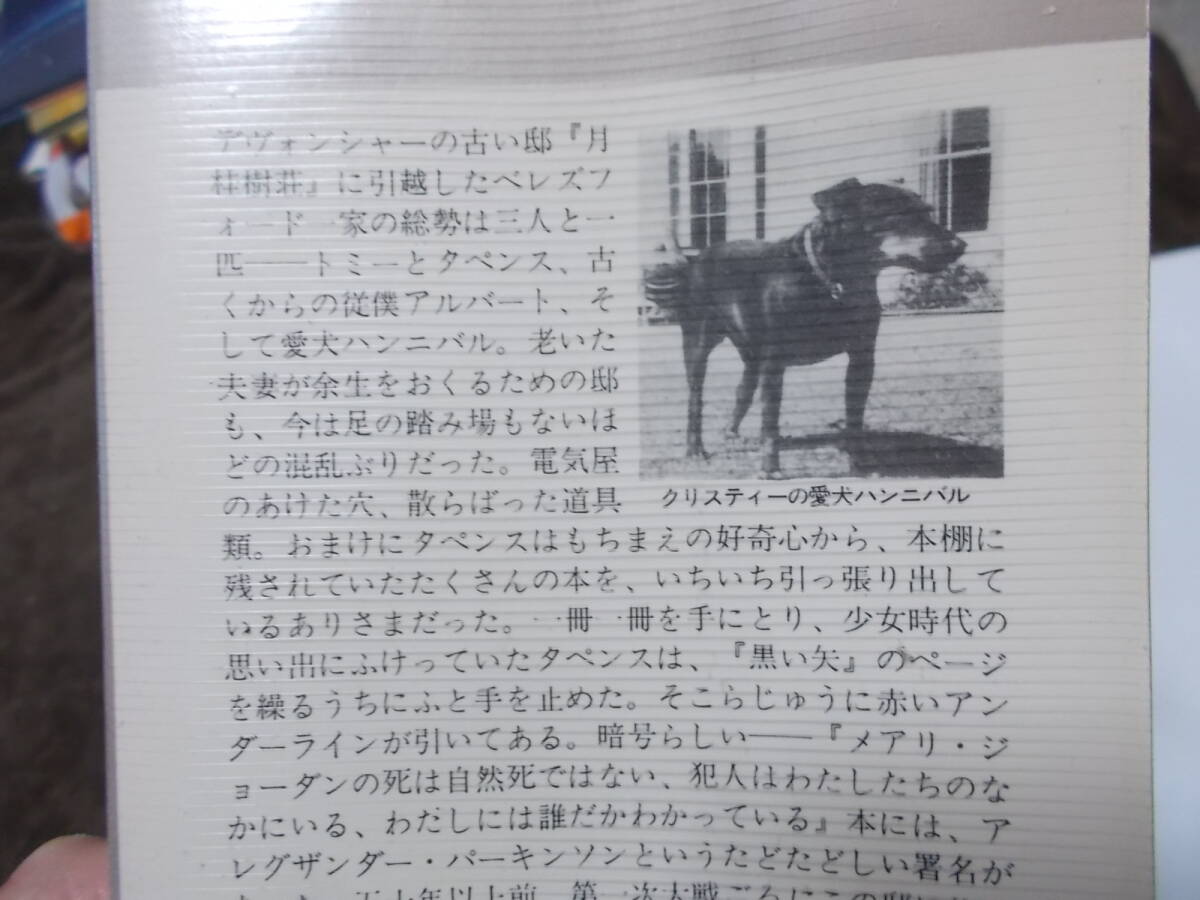 デヴォンシャーの古い邸『月
桂樹荘』に引越したベレズフ
ォード一家の総勢は三人と一
匹——トミーとタペンス、古
くからの従僕アルバート、そ
して愛犬ハンニバル。老いた
夫妻が余生をおくるための邸
も、今は足の踏み場もないほ
どの混乱ぶりだった。電気屋
のあけた穴、散らばった道具
クリスティーの愛犬ハンニバル
類。おまけにタペンスはもちまえの好奇心から、本棚に
残されていたたくさんの本を、いちいち引っ張り出して
いるありさまだった。一冊一冊を手にとり、少女時代の
思い出にふけっていたタペンスは、『黒い矢』のページ
を繰るうちにふと手を止めた。そこらじゅうに赤いアン
ダーラインが引いてある。暗号らしい——『メアリ・ジ
ョーダンの死は自然死ではない、犯人はわたしたちのな
かにいる、わたしには誰だかわかっている』本には、ア
レグザンダー・パーキンソンというたどたどしい署名が
五十年以上前、第一次大戦ごろにこの邸に